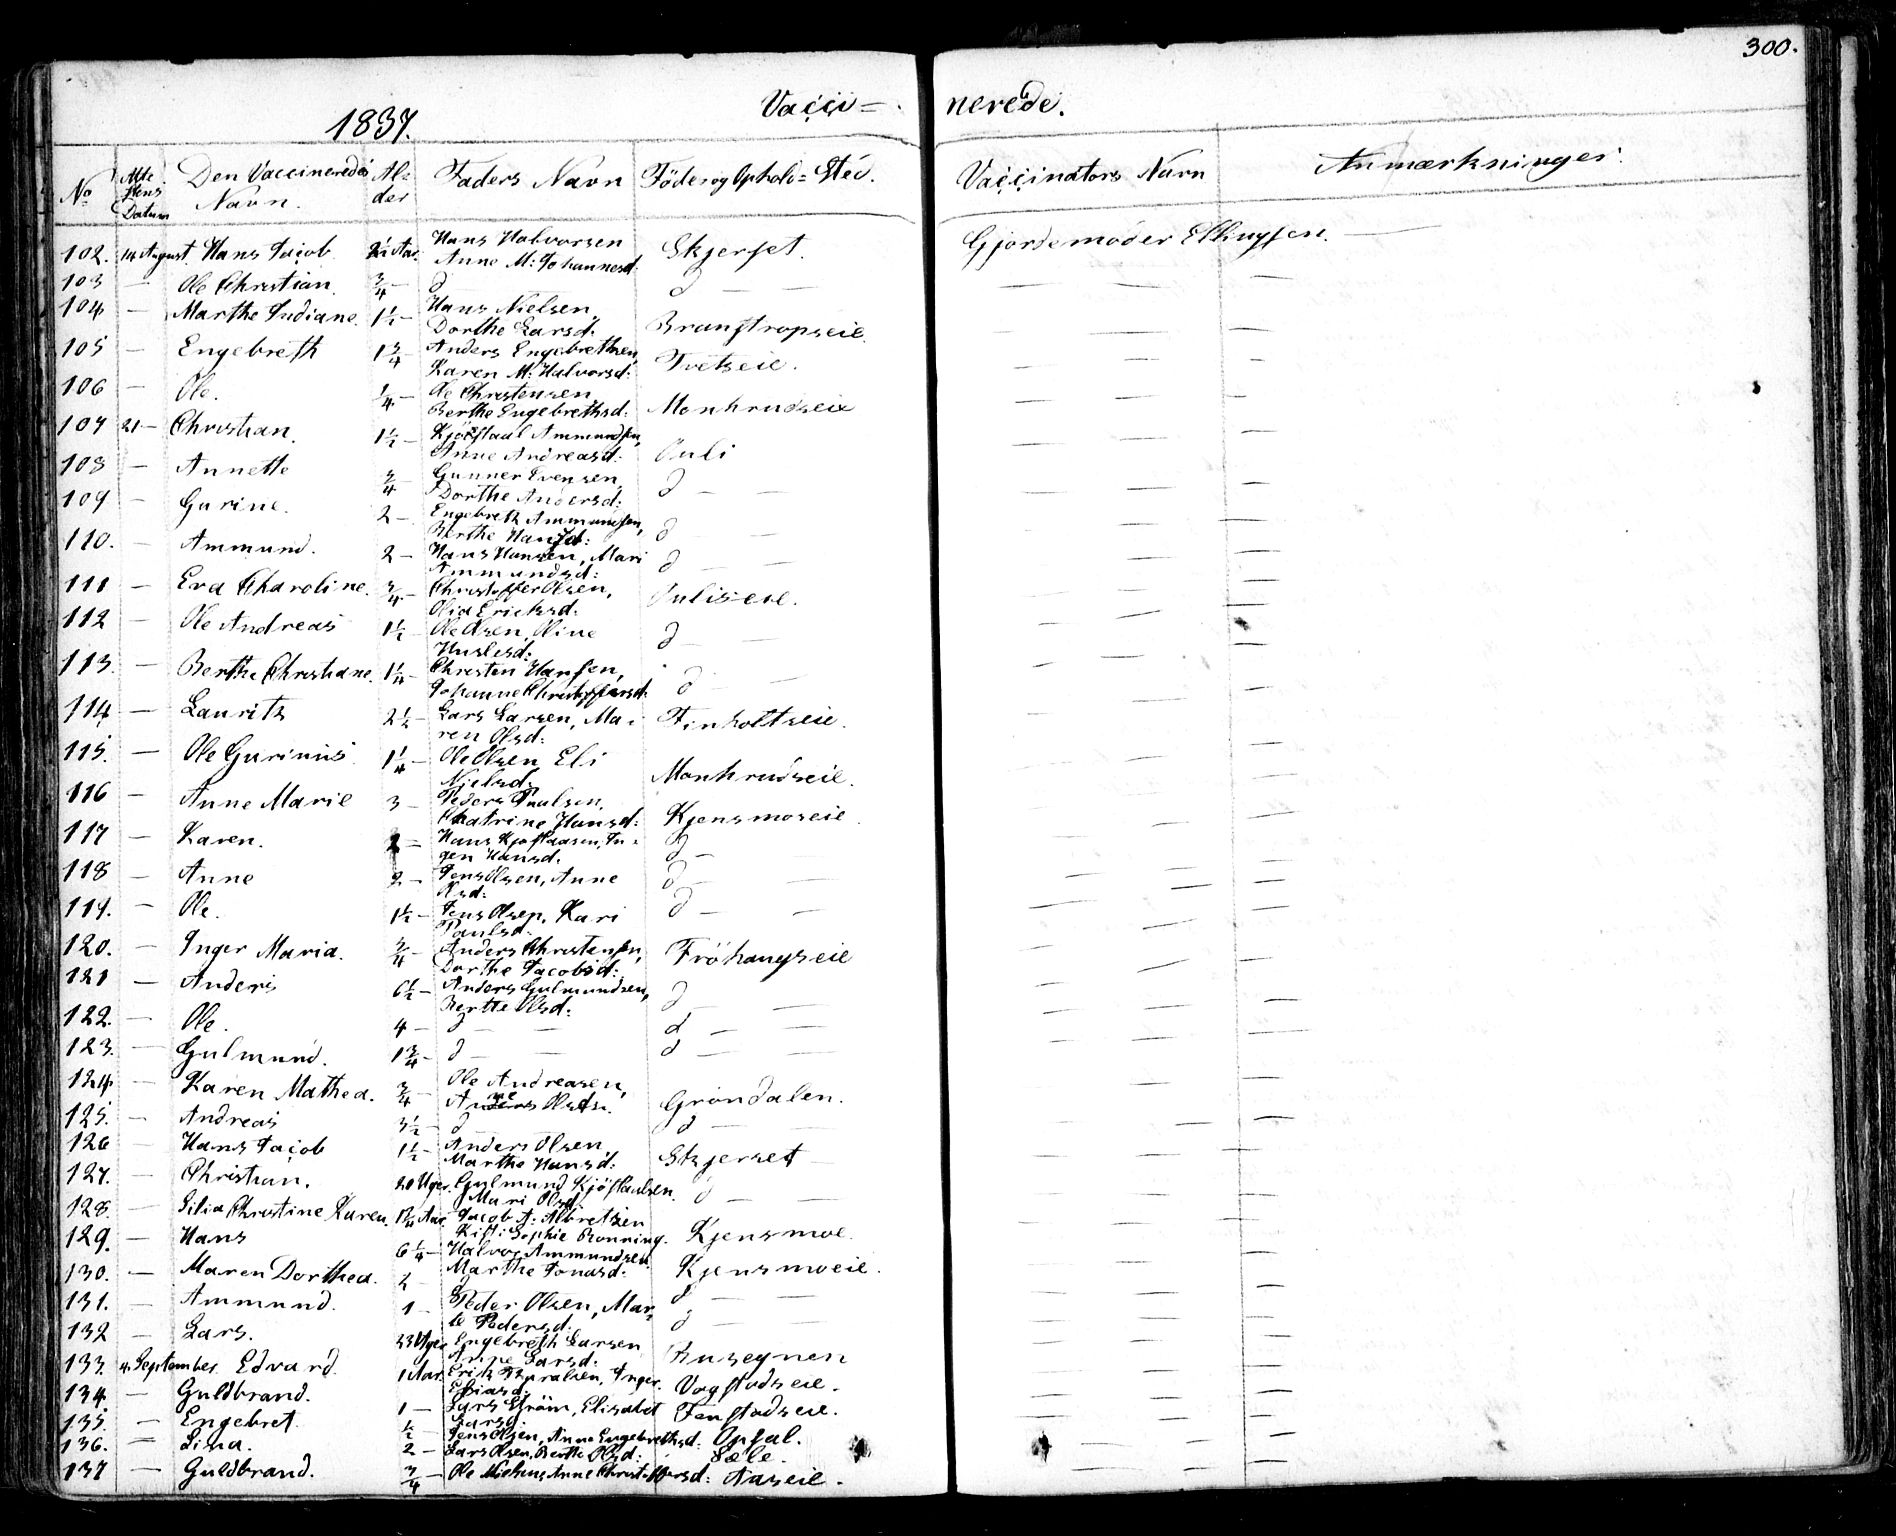 300.
1837. Vacci= nerede.
No Atte stens Datum Den Vaccineredes Navn. Al= der Faders Navn Föde og Opholds=Sted. Vaccinators Navn Anmærkninger.
102. 14 August. Hans Jacob 2½ Aar. Hans Halvorsen Anne M: Johannesd: Skjerset. Gjordemoder Ellingsen. —
103 — Ole Christian. ¾ — d d — — — — —
104 — Marthe Indiane. 1½ — Hans Nielsen, Dorthe Larsd: Branstropseie. — — —
105 — Engebreth 1¾ — Anders Engebrethsen, Karen M: Halvorsd: Tvetseie. — — —
106 — Ole. ¼ — Ole Christensen, Berthe Engebrethsd: Monkrudseie — — —
107 21 — Christian. 1½ — Kjöstaul Ammundsen, Anne Andreasd: Juli — — —
108 — Annette ¾ Gunner Evensen, Dorthe Andersd: d — — — — —
109 — Gurine. 2 — Engebreth Ammundsen, Berthe Hansd: d — — — — —
110. — Ammund. 2 — Hans Hansen, Mari Ammundsd: d — — — — —
111 — Eva Charoline. ¾ — Christoffer Olsen, Olia Ericksd: Juliseie. — — —
112 — Ole Andreas 1½ — Ole Olsen, Oline d — — — — —
113. — Berthe Christiane. 1¼ — Christen Hansen, Johanne Christoffersd: d — — — — —
114 — Lauritz 2½ — Lars Larsen, Ma= ren Olsd: Finholtseie. — — —
115. — Ole Gurinius 1¼ — Ole Olsen, Eli Nielsd: Monkrudseie. — — —
116 — Anne Marie 3 — Peders Paulsen, Chatrine Hansd: Kjensmoseie. — — —
117 — Karen. 2 — Hans Kjöstaasen, In= gen Hansd. d — — — —
118 — Anne 2 — Jens Olsen, Anne Olsd: d — — — — —
119. — Ole. 1½ — Jens Olsen, Kari Paulsd. d — — — — —
120. — Inger Maria. ¾ — Anders Christensen, Dorthe Jacobsd: Fröhaugseie — — —
121 — Anders 6½ — Anders Gulmundsen, Berthe Olsd: d — — — — —
122. — Ole. 4 — d — — d — — — — —
123. — Gulmund. 1¾ — d — — d — — — — —
124 — Karen Mathea. ¾ — Ole Andreasen, Anne Olsd: Gröndalen. — — —
125. — Andreas 3½ — d — d — — — —
126 — Hans Jacob 1½ — Anders Olsen, Marthe Hansd: Skjerset — — — —
127. — Christian. 20 Uger. Gulmund Kjöstaulsen. Mari Olsd: d — — — — —
128. — Silia Christine Karen. 1¾ Aar. Jacob A: Albretsen Kisti Sophie Ronning. Kjensmoe. — — —
129. — Hans 6¼ — Halvor Ammundsen, Marthe Jonasd: Kjensmoeie. — — —
130. — Maren Dorthea. 2 — d d — — — — —
131. — Ammund. 1 — Peder Olsen, Mar= te Pedersd: d — — — — —
132 — Lars. 23 Uger Engebreth Larsen, Anne Larsd: Busegnen — — —
133. 4. September Edvard 1 Aar. Erick Inger. Eliasd: Vogstadseie. — — —
134. — Guldbrand. 1 — Lars Ström, Elisabet Larsd Fenstadseie. — — —
135. — Engebret ½ — Jens Olsen, Anne Engebrethsd: Opsal. — — —
136. — Lina. 2 — Lars Olsen, Berthe Olsd: Sæle. — — —
137 — Guldbrand. ¾ — Ole Anne Christoffersd: Aaseie. — — —